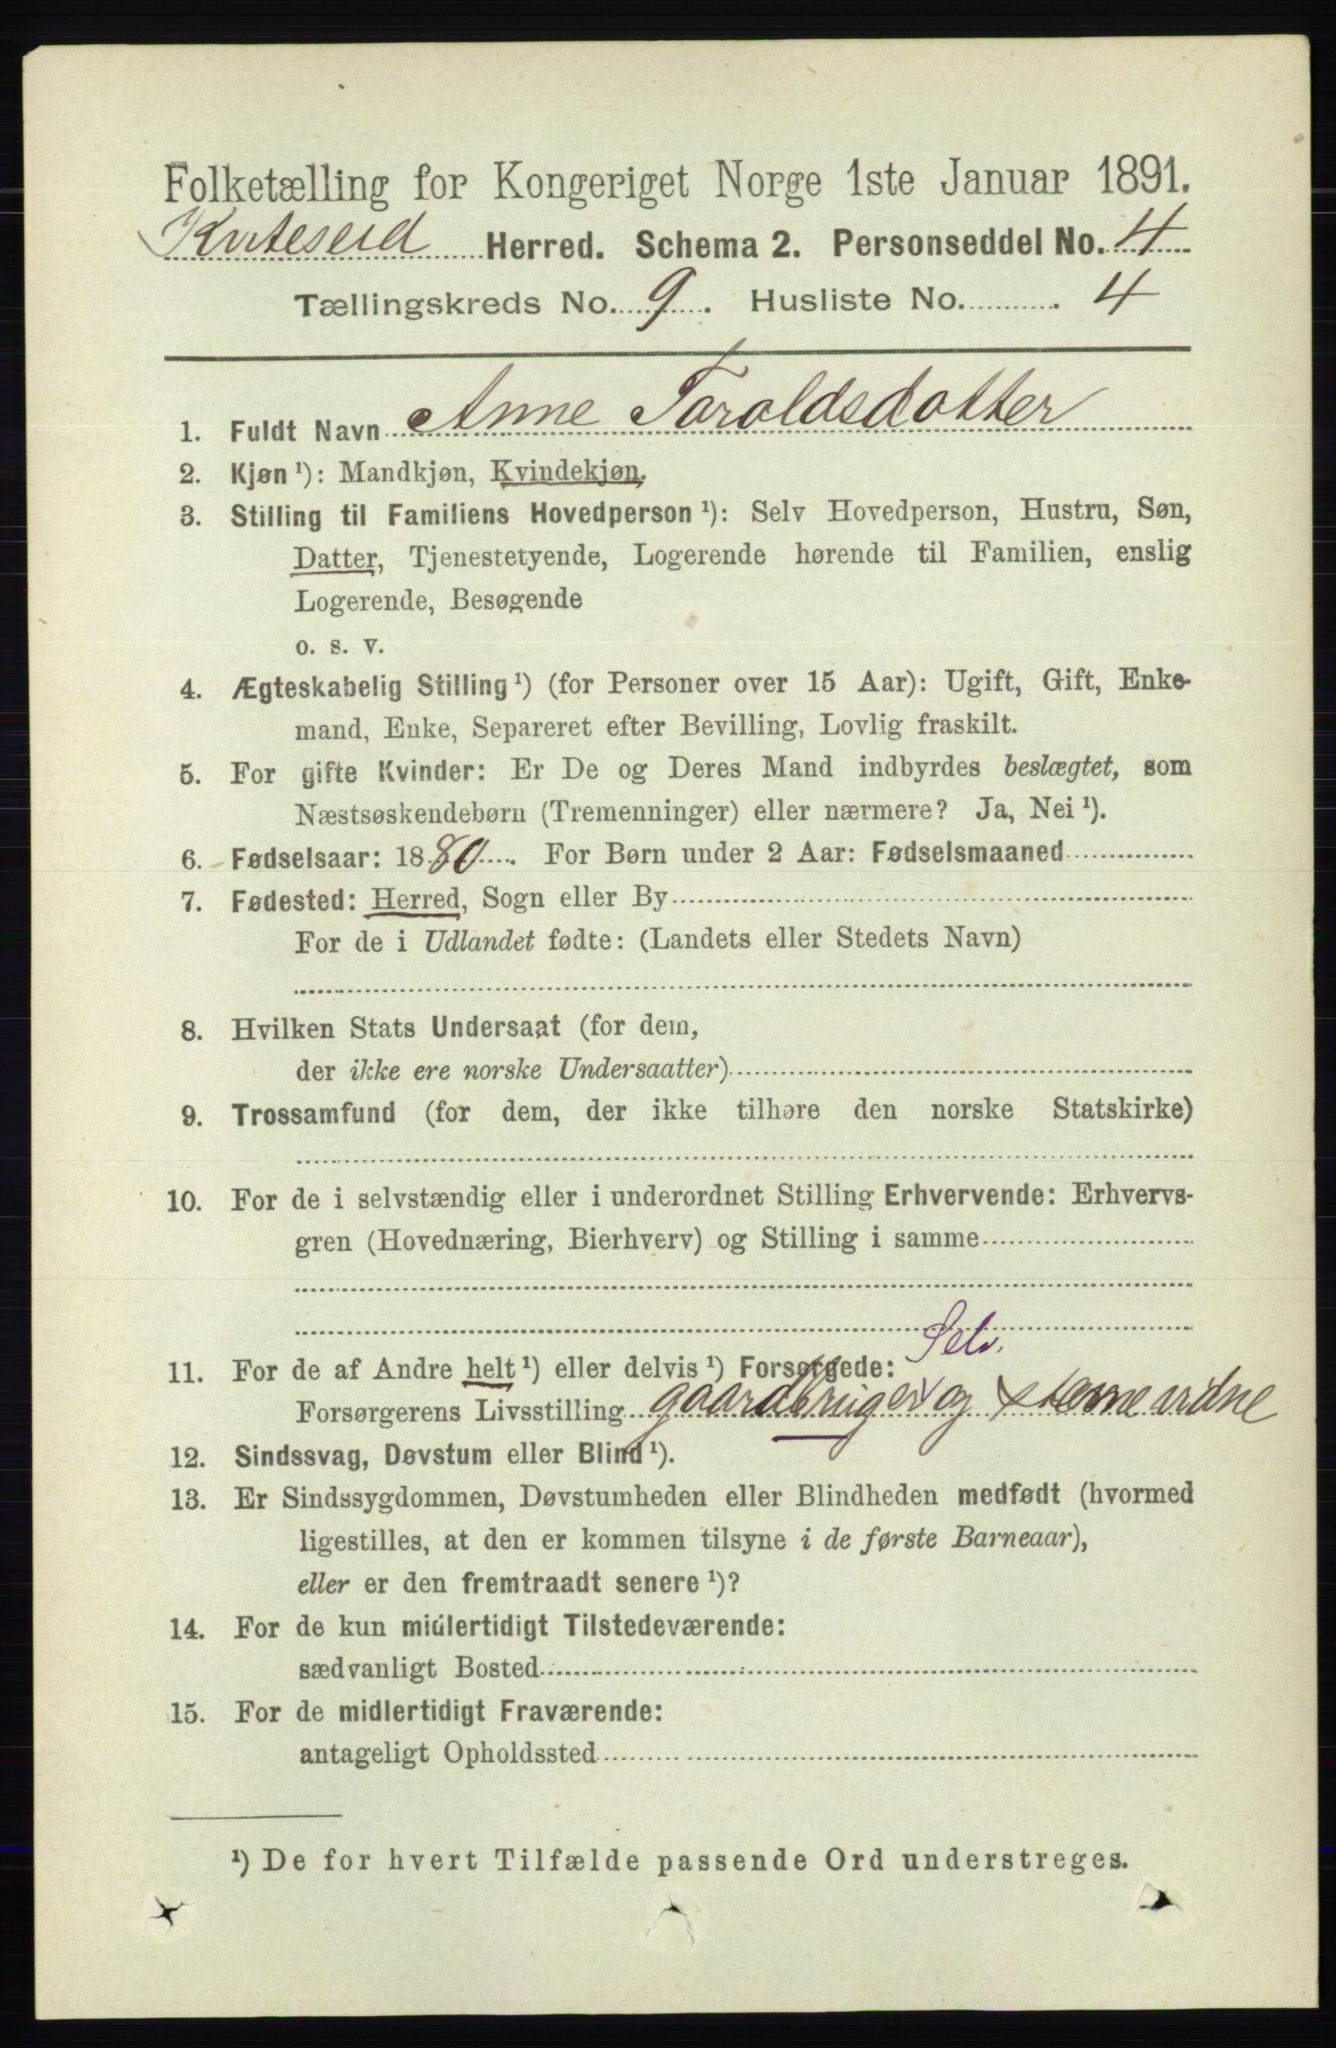 Folketælling for Kongeriget Norge 1ste Januar 1891.
Kviteseid Herred. Schema 2. Personseddel No. 4
Tællingskreds No. 9. Husliste No. 4
1. Fuldt Navn Anne Taroldsdatter
2. Kjøn ¹): Mandkjøn, Kvindekjøn.
3. Stilling til Familiens Hovedperson ¹): Selv Hovedperson, Hustru, Søn,
Datter, Tjenestetyende, Logerende hørende til Familien, enslig
Logerende, Besøgende
o. s. v.
4. Ægteskabelig Stilling ¹) (for Personer over 15 Aar): Ugift, Gift, Enke-
mand, Enke, Separeret efter Bevilling, Lovlig fraskilt.
5. For gifte Kvinder: Er De og Deres Mand indbyrdes beslægtet, som
Næstsøskendebørn (Tremenninger) eller nærmere? Ja, Nei ¹).
6. Fødselsaar: 1880. For Børn under 2 Aar: Fødselsmaaned
7. Fødested: Herred, Sogn eller By
For de i Udlandet fødte: (Landets eller Stedets Navn)
8. Hvilken Stats Undersaat (for dem,
der ikke ere norske Undersaatter)
9. Trossamfund (for dem, der ikke tilhøre den norske Statskirke)
10. For de i selvstændig eller i underordnet Stilling Erhvervende: Erhvervs-
gren (Hovednæring, Bierhverv) og Stilling i samme
Selv.
11. For de af Andre helt ¹) eller delvis ¹) Forsørgede:
Forsørgerens Livsstilling gaardbruger og stevnevidne
12. Sindssvag, Døvstum eller Blind ¹).
13. Er Sindssygdommen, Døvstumheden eller Blindheden medfødt (hvormed
ligestilles, at den er kommen tilsyne i de første Barneaar),
eller er den fremtraadt senere ¹)?
14. For de kun midlertidigt Tilstedeværende:
sædvanligt Bosted
15. For de midlertidigt Fraværende:
antageligt Opholdssted
¹) De for hvert Tilfælde passende Ord understreges.